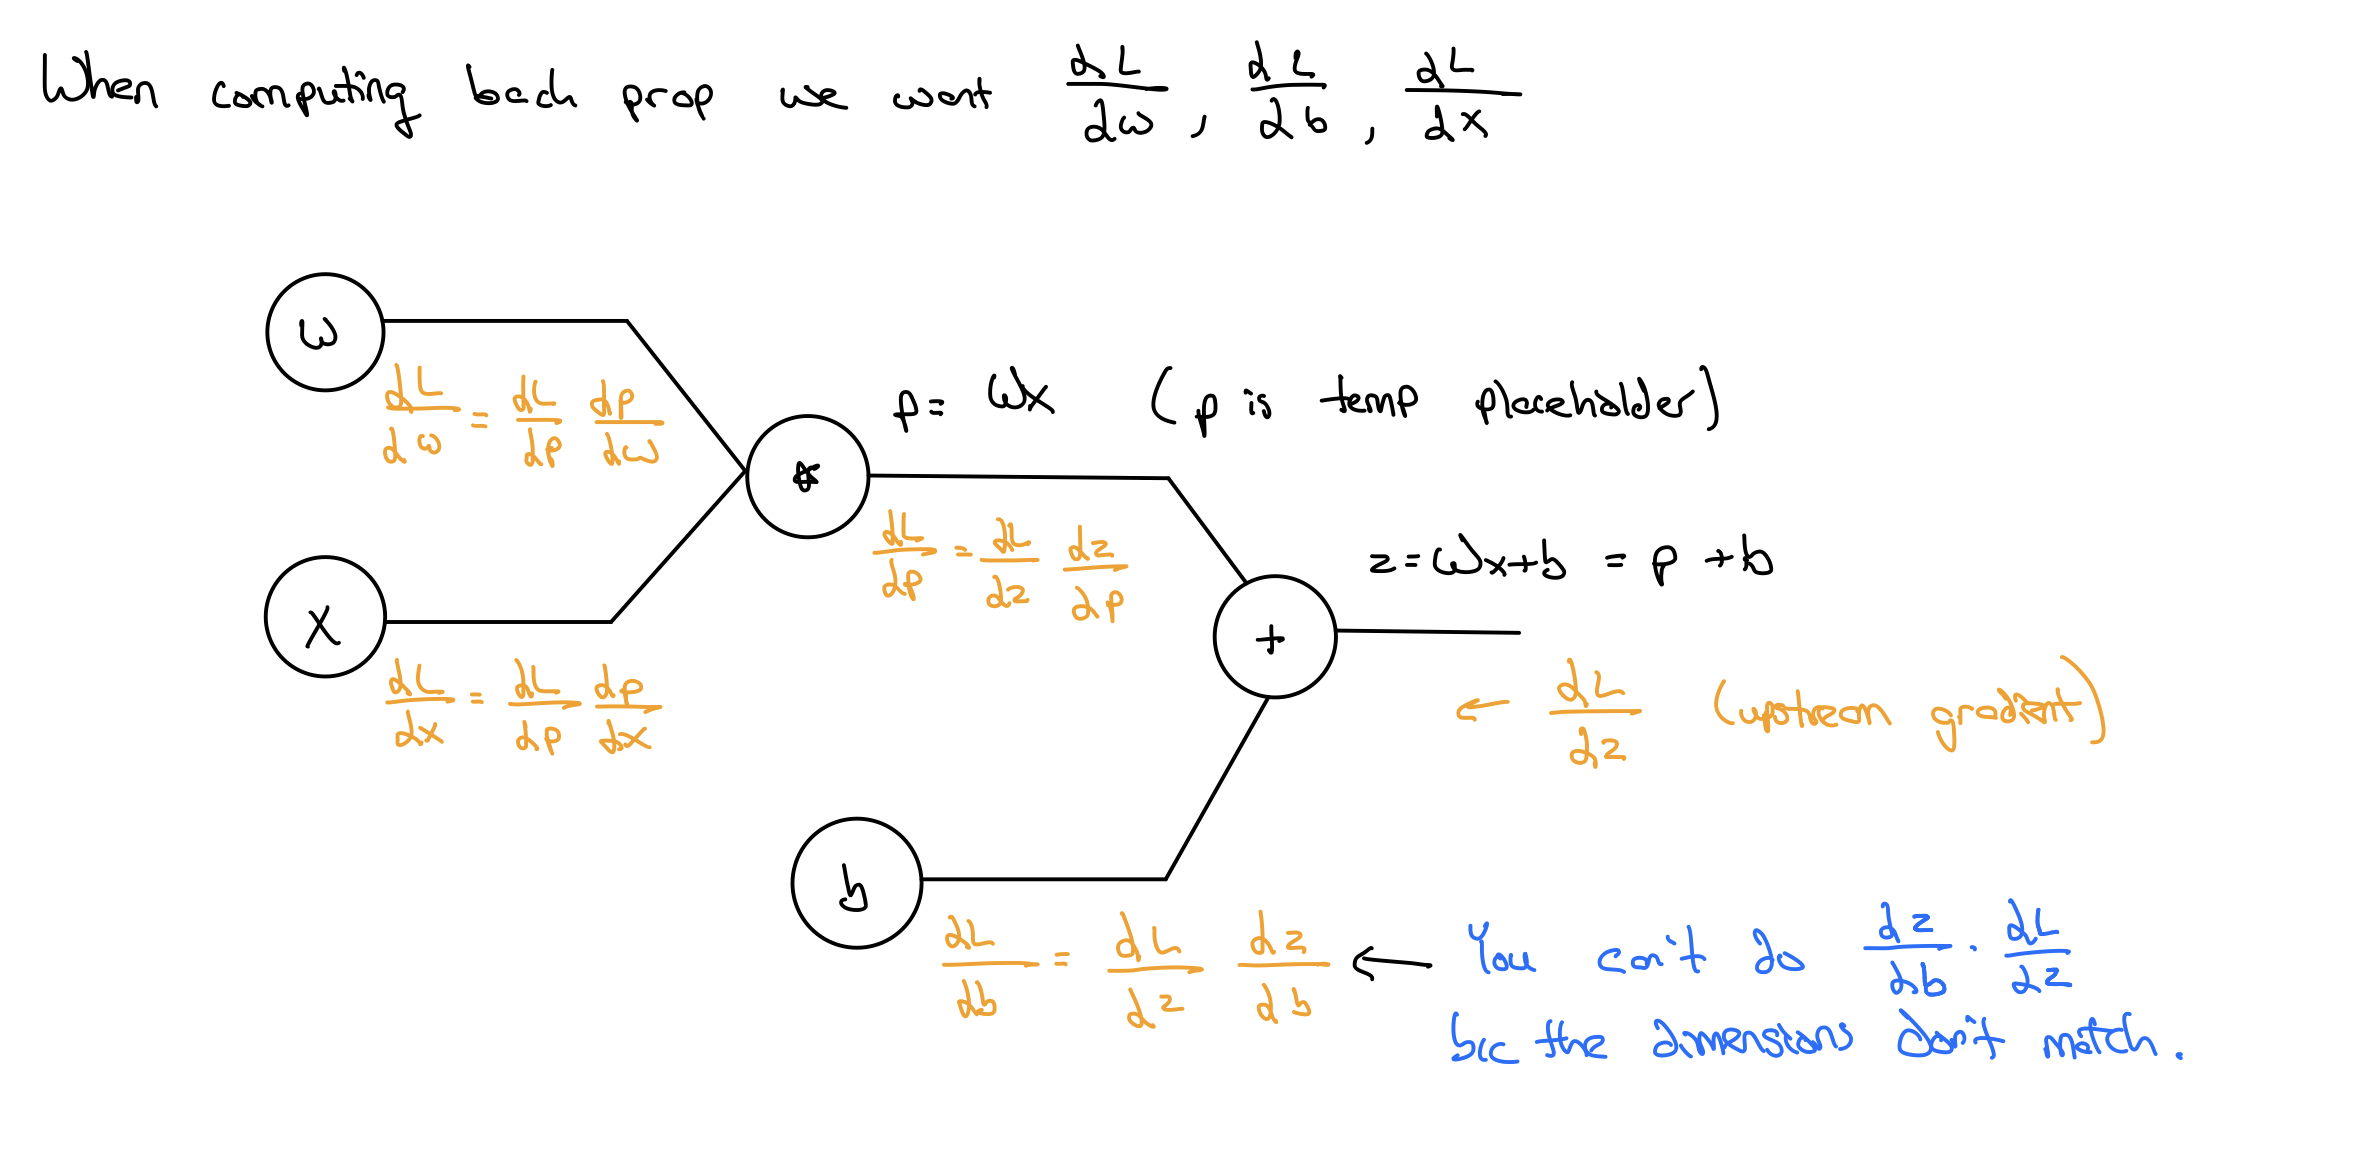 When computing back prop we want dL/dw , dL/db , dL/dx
w
dL/dw = dL/dp dp/dw
p= Wx (p is temp placeholder)
*
dL/dp = dL/dz dz/dp
z=Wx+b = p +b
x
+
dL/dx = dL/dp dp/dx
← dL/dz (upstream gradient)
b
dL/db = dL/dz dz/db ← You can't do dz/db · dL/dz
bc the dimensions don't match.